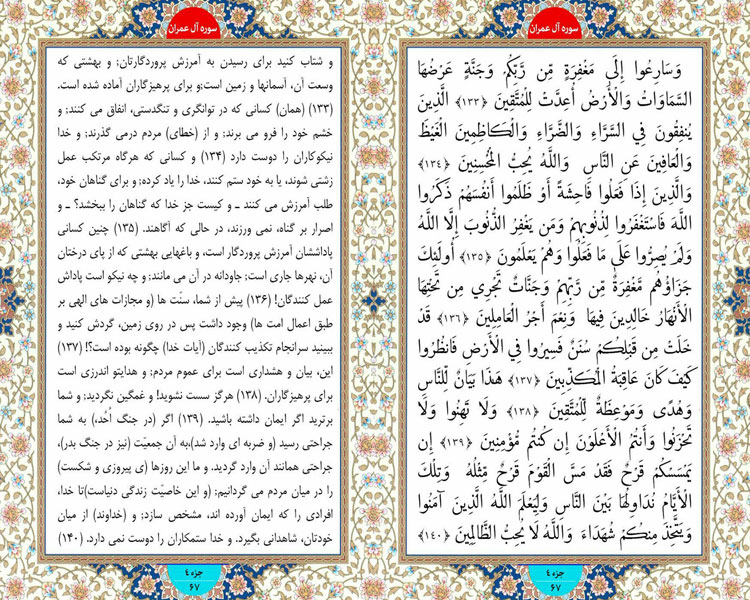 سوره آل عمران
وَ سَارِعُوا إِلَى مَغْفِرَةٍ مِّن رَّبِّكُمْ وَجَنَّةٍ عَرْضُهَا
السَّمَاوَاتُ وَالْأَرْضُ أُعِدَّتْ لِلْمُتَّقِينَ ﴿۱۳۳﴾ الَّذِينَ
يُنفِقُونَ فِي السَّرَّاءِ وَالضَّرَّاءِ وَالْكَاظِمِينَ الْغَيْظَ
وَالْعَافِينَ عَنِ النَّاسِ وَاللَّهُ يُحِبُّ الْمُحْسِنِينَ ﴿۱۳٤﴾
وَالَّذِينَ إِذَا فَعَلُوا فَاحِشَةً أَوْ ظَلَمُوا أَنفُسَهُمْ ذَكَرُوا
اللَّهَ فَاسْتَغْفَرُوا لِذُنُوبِهِمْ وَمَن يَغْفِرُ الذُّنُوبَ إِلَّا اللَّهُ
وَلَمْ يُصِرُّوا عَلَى مَا فَعَلُوا وَهُمْ يَعْلَمُونَ ﴿۱۳۵﴾ أُولَئِكَ
جَزَاؤُهُم مَّغْفِرَةٌ مِّن رَّبِّهِمْ وَجَنَّاتٌ تَجْرِي مِن تَحْتِهَا
الْأَنْهَارُ خَالِدِينَ فِيهَا وَنِعْمَ أَجْرُ الْعَامِلِينَ ﴿۱۳۶﴾ قَدْ
خَلَتْ مِن قَبْلِكُمْ سُنَنٌ فَسِيرُوا فِي الْأَرْضِ فَانْظُرُوا
كَيْفَ كَانَ عَاقِبَةُ الْمُكَذِّبِينَ ﴿۱۳۷﴾ هَذَا بَيَانٌ لِّلنَّاسِ
وَهُدًى وَمَوْعِظَةٌ لِّلْمُتَّقِينَ ﴿۱۳۸﴾ وَلَا تَهِنُوا وَلَا
تَحْزَنُوا وَأَنتُمُ الْأَعْلَوْنَ إِن كُنتُم مُّؤْمِنِينَ ﴿۱۳۹﴾ إِن
يَمْسَسْكُمْ قَرْحٌ فَقَدْ مَسَّ الْقَوْمَ قَرْحٌ مِّثْلُهُ وَتِلْكَ
الْأَيَّامُ نُدَاوِلُهَا بَيْنَ النَّاسِ وَلِيَعْلَمَ اللَّهُ الَّذِينَ آمَنُوا
وَيَتَّخِذَ مِنكُمْ شُهَدَاءَ وَاللَّهُ لَا يُحِبُّ الظَّالِمِينَ ﴿۱٤۰﴾
جزء ٤
۶۷
سوره آل عمران
و شتاب کنید برای رسیدن به آمرزش پروردگارتان؛ و بهشتی که
وسعت آن، آسمانها و زمین است؛و برای پرهیزگاران آماده شده است.
(۱۳۳) (همان) کسانی که در توانگری و تنگدستی، انفاق می کنند؛ و
خشم خود را فرو می برند؛ و از (خطای) مردم درمی گذرند؛ و خدا
نیکوکاران را دوست دارد (۱۳۴) و کسانی که هرگاه مرتکب عمل
زشتی شوند، یا به خود ستم کنند، خدا را یاد کرده؛ و برای گناهان خود،
طلب آمرزش می کنند ـ و کیست جز خدا که گناهان را ببخشد؟ ـ و
اصرار بر گناه، نمی ورزند، در حالی که آگاهند. (۱۳۵) چنین کسانی
پاداششان آمرزش پروردگار است، و باغهایی بهشتی که از پای درختان
آن، نهرها جاری است؛ جاودانه در آن می مانند؛ و چه نیکو است پاداش
عمل کنندگان! (۱۳۶) پیش از شما، سنّت ها (و مجازات های الهی بر
طبق اعمال امت ها) وجود داشت پس در روی زمین، گردش کنید و
ببینید سرانجام تکذیب کنندگان (آیات خدا) چگونه بوده است؟! (۱۳۷)
این، بیان و هشداری است برای عموم مردم؛ و هدایتو اندرزی است
برای پرهیزگاران. (۱۳۸) هرگز سست نشوید! و غمگین نگردید؛ و شما
برترید اگر ایمان داشته باشید. (۱۳۹) اگر (در جنگ اُحُد،) به شما
جراحتی رسید (و ضربه ای وارد شد)،به آن جمعیّت (نیز در جنگ بدر)،
جراحتی همانند آن وارد گردید. و ما این روزها (ی پیروزی و شکست)
را در میان مردم می گردانیم؛ (و این خاصیّت زندگی دنیاست)تا خدا،
افرادی را که ایمان آورده اند، مشخص سازد؛ و (خداوند) از میان
خودتان، شاهدانی بگیرد. و خدا ستمکاران را دوست نمی دارد. (۱۴۰)
جزء ٤
۶۷